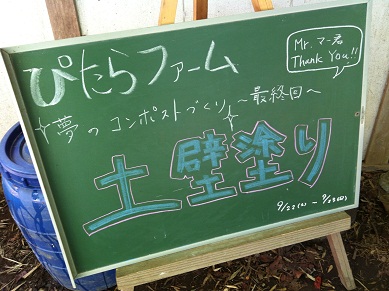 ぴたらファーム
Mr. マー君
Thank You!!
夢のコンポストづくり 〜最終回〜
土壁塗り
9/22(土) 〜 9/23(日)